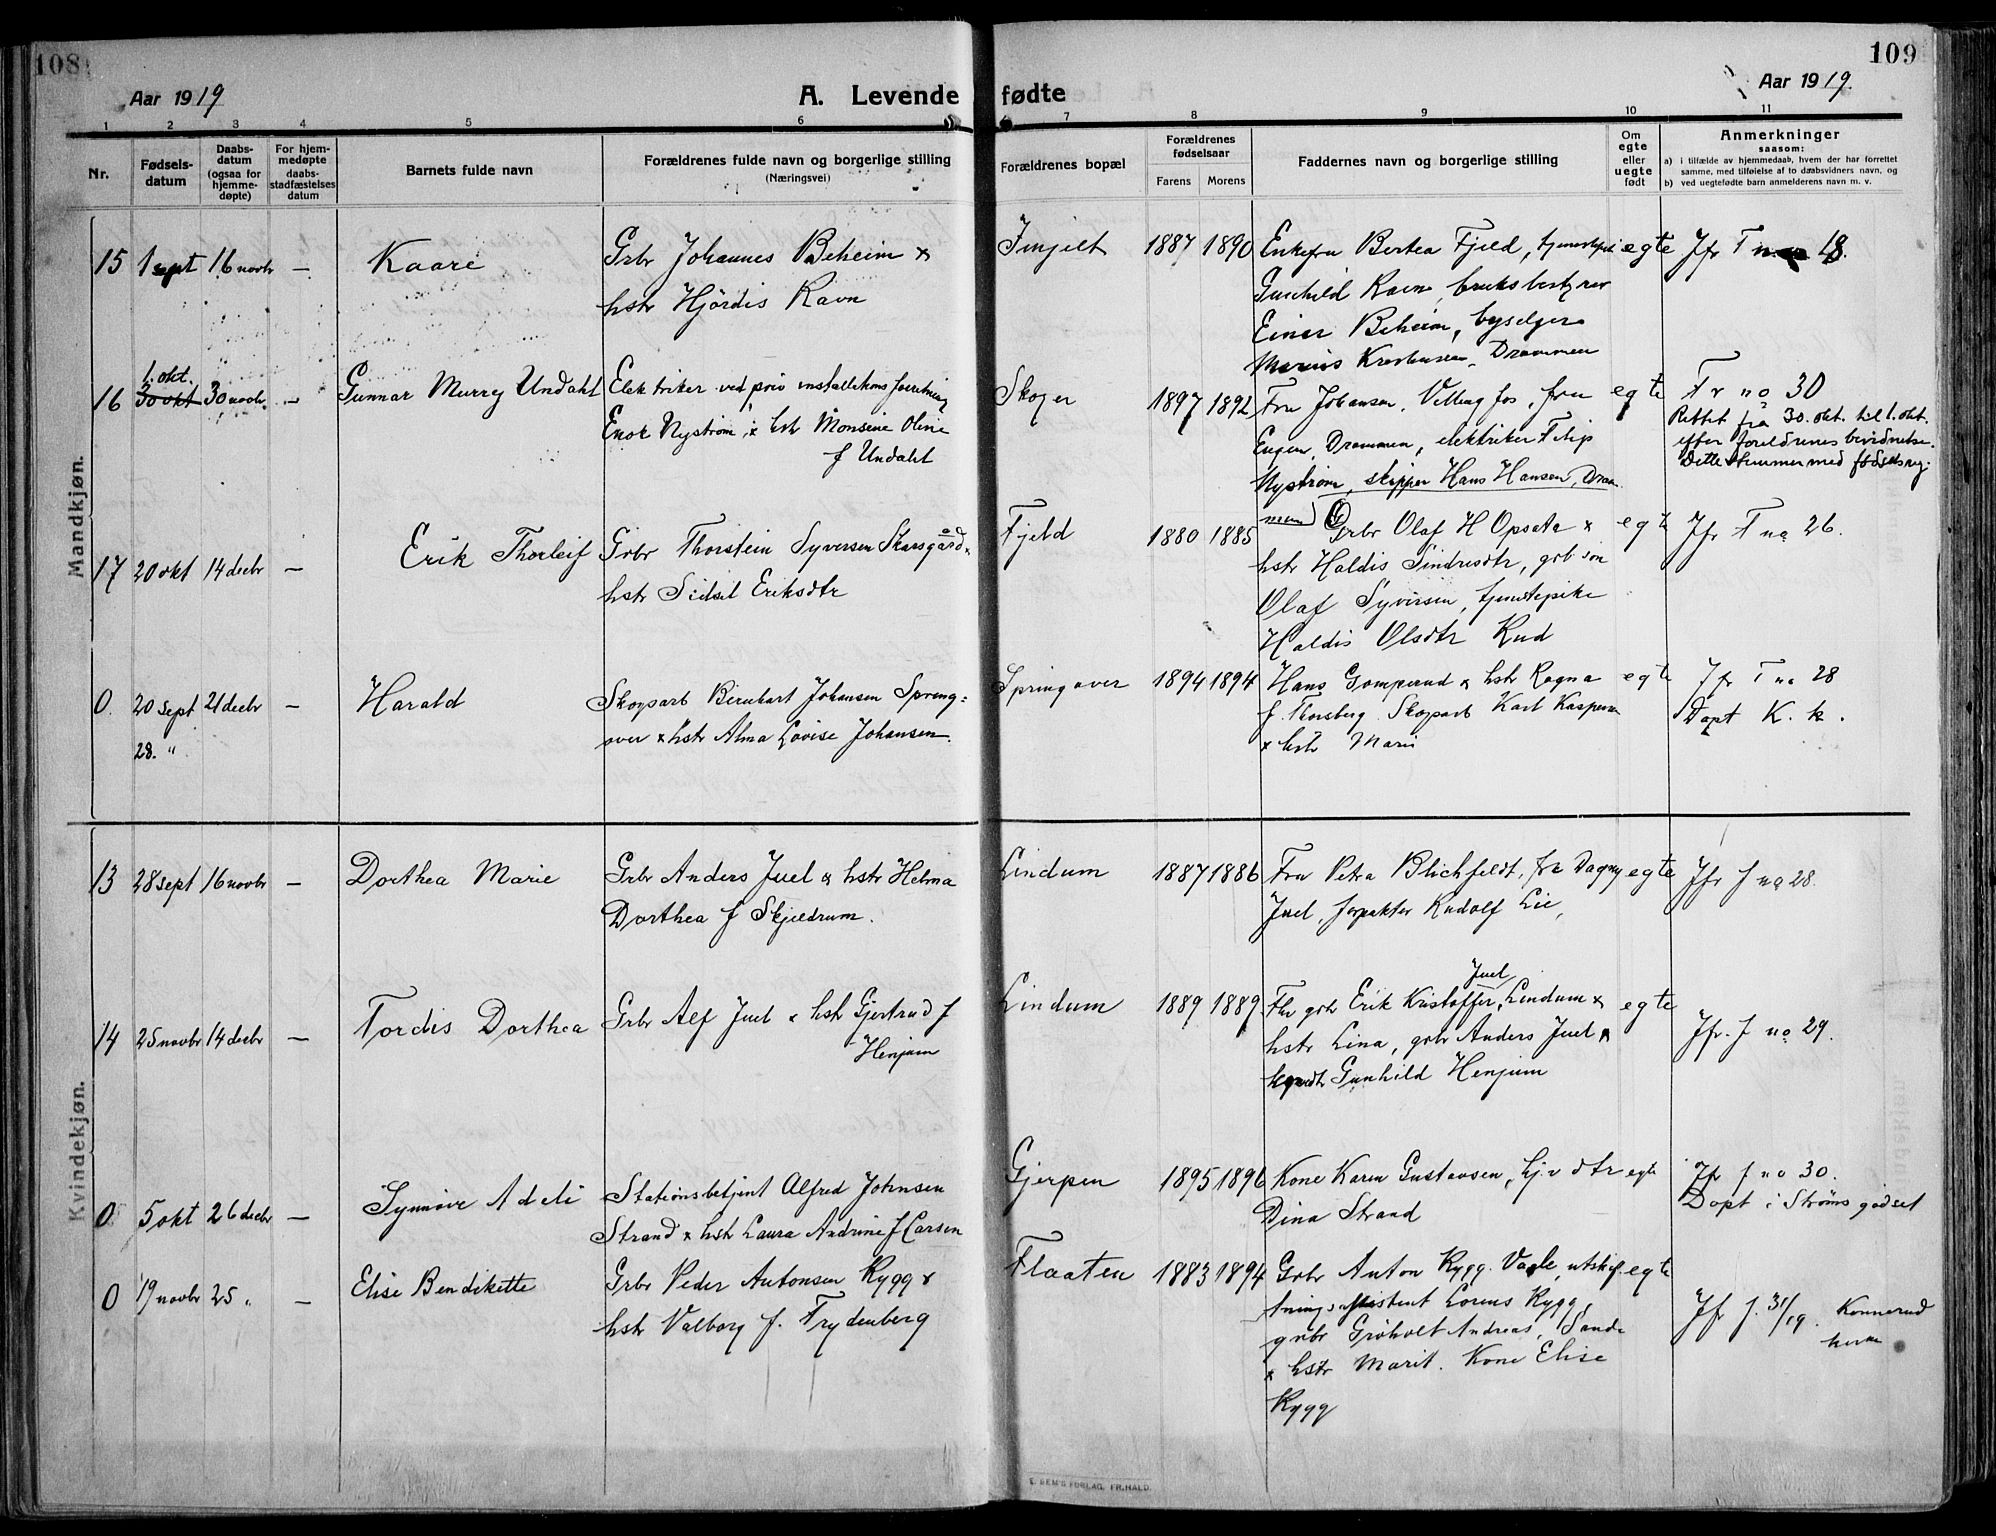 108
109
Aar 1919
A. Levende fødte
Aar 1919.
1 2 3 4 5 6 7 8 9 10 11
Nr.
Fødsels-
datum
Daabs-
datum
(ogsaa for
hjemme-
døpte)
For hjem-
medøpte
daabs-
stadfæstelses
datum
Barnets fulde navn
Forældrenes fulde navn og borgerlige stilling
(Næringsvei)
Forældrenes bopæl
Forældrenes
fødselsaar
Farens Morens
Faddernes navn og borgerlige stilling
Om
egte
eller
uegte
født
Anmerkninger
saasom:
a) i tilfælde av hjemmedaab, hvem der har forrettet
samme, med tilføielse af to daabsvidners navn, og
b) ved uegtefødte barn anmelderens navn m. v.
Mandkjøn.
15 1 sept 16 novbr – Kaare
Grbr Johannes Beheim &
hstr Hjørdis Ravn
1887 1890
Enkefru Bertea Fjeld,
Gunhild Ravn, bruksbestyrer
Einar Beheim,
Marius Drammen
egte
Jfr T 18.
16 1. okt.
30 okt 30 novbr – Gunnar Murry Undahl
Elektriker ved priv installations forretning
Enok Nystrøm, & hstr Monsine Oline
f Undahl
Skoger 1897 1892
Fru Johansen, fru
Eugen, Drammen, elektriker Filip
Nystrøm, skipper Hans Hansen, Dram
men
egte
Fr no 30
Rettet fra 30. okt. til 1. okt.
efter foreldrenes bevidnelse.
Dette stemmer med fødselsreg.
17 20 okt 14 decbr – Erik Thorleif
Grbr Thorstein Syversen Skarsgård &
hstr Sidsel Eriksdtr
Fjeld 1880 1885
Grbr Olaf H Opsata &
hstr Haldis Sindresdtr, grb søn
Olaf Syversen, tjenestepike
Haldis Olsdtr Rud
egte
Jfr T no 26.
0. 20 sept 21 decbr – Harald
28. "
Skogsarb Bernhart Johansen Spreng-
over & hstr Alma Lovise Johansen.
Springover 1894 1894
Hans Gomperud & hstr Ragna
f. Thorsberg. Skogarb Karl Kaspersen
& hstr Marie
egte
Jfr T no 28
Døpt K. k.
Kvindekjøn.
13 28 sept 16 novbr – Dorthea Marie
Grbr Anders Juel & hstr Helma
Dorthea f Skjeldrum.
Lindum 1887 1886
Fru Petra Blichfeldt, frk Dagny
Juel, forpakter Rudolf Lie,
egte
Jfr J no 28.
14 25 novbr 14 decbr – Tordis Dorthea
Grbr Alf Juel & hstr Gjertrud f
Henjum
Lindum 1889 1889
Juel
Fhv grbr Erik Kristoffer, Lindum &
hstr Lina, grbr Anders Juel &
Gunhild Henjum
egte
Jfr. J no 29.
0 5 okt 26 decbr – Synnøve Adele
Stationsbetjent Alfred Johnsen
Strand & hstr Laura Andrine f Larsen
Gjerpen 1895 1896
Kone Karen Gustavsen, hj.v dtr
Dina Strand
egte
Jfr J no 30.
Døpt i Strømsgodset
0 19 novbr 25 " – Elise Bendikette
Grbr Peder Antonsen Rygg &
hstr Valborg f. Frydenberg
Flaaten 1883 1894
Grbr Anton Rygg. Vaale, utskif-
tningsassistent Lorens Rygg
grbr Grøholt Andreas, Sande
& hstr Marit. Kone Elise
Rygg
egte
Jfr J. 31/19. Konnerud
kirke
E. SEM'S FORLAG, FR.HALD.